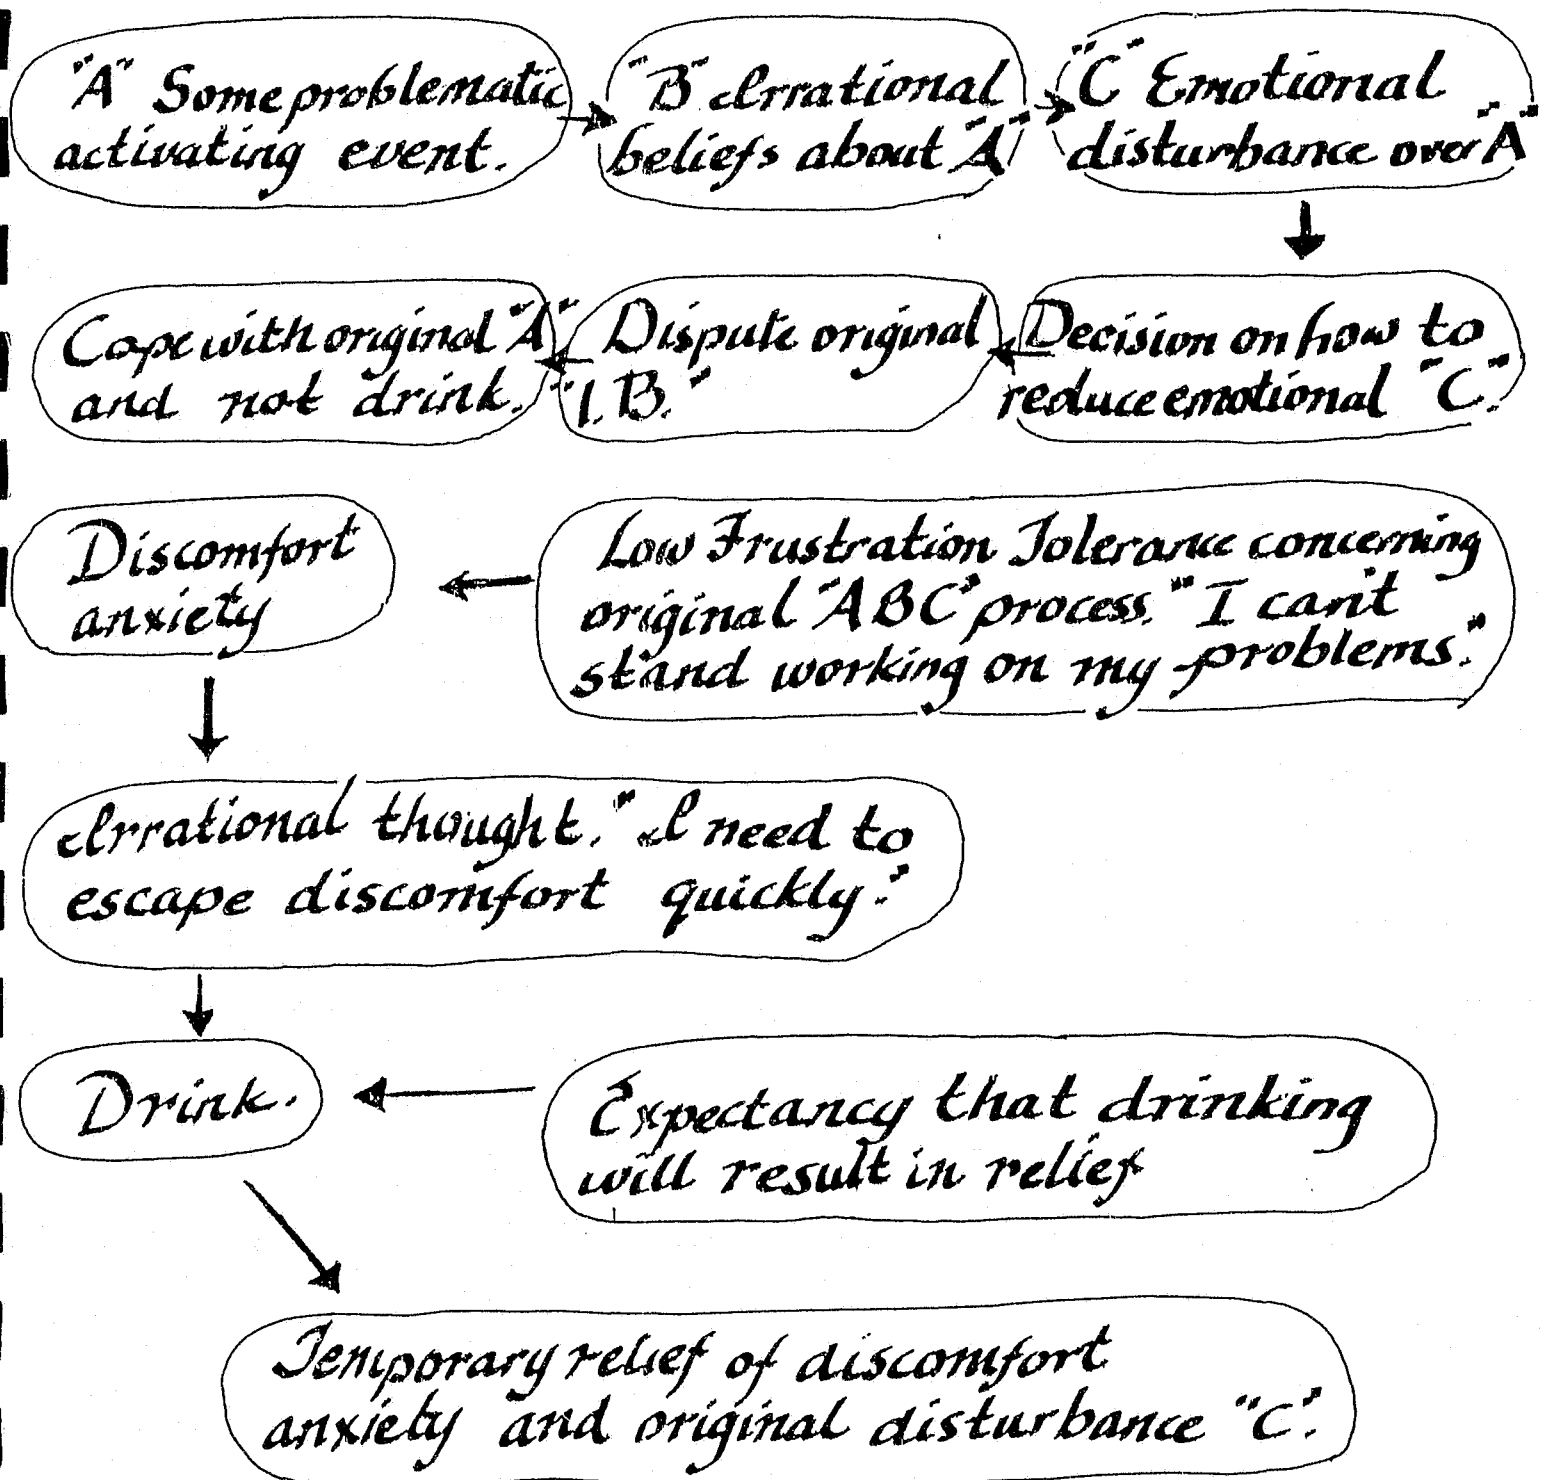 "A" Some problematic
activating event.
"B" Irrational
beliefs about "A"
"C" Emotional
disturbance over "A"
Cope with original "A"
and not drink.
Dispute original
"I.B."
Decision on how to
reduce emotional "C".
Discomfort
anxiety
Low Frustration Tolerance concerning
original "ABC" process. "I can't
stand working on my problems."
Irrational thought. "I need to
escape discomfort quickly."
Drink.
Expectancy that drinking
will result in relief
Temporary relief of discomfort
anxiety and original disturbance "C".